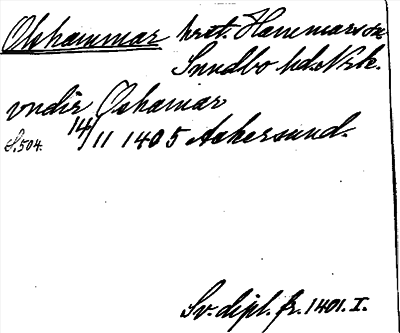 Olshammar kret. Hammars sn
Sundbo hd. Nrk.
vndir Oshamar
S. 504. 14/11 1405 Askersund.
Sv. dipl. fr. 1401. I.